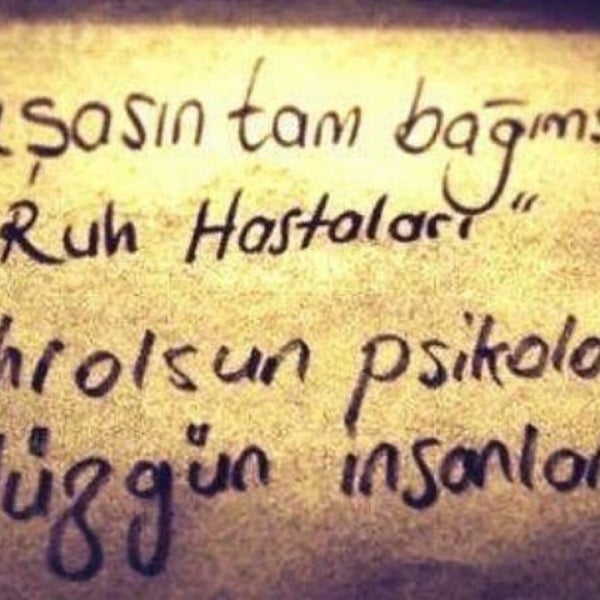 aşasın tam bağıms
Ruh Hastaları"
hrolsun psikolo
düzgün insanlar